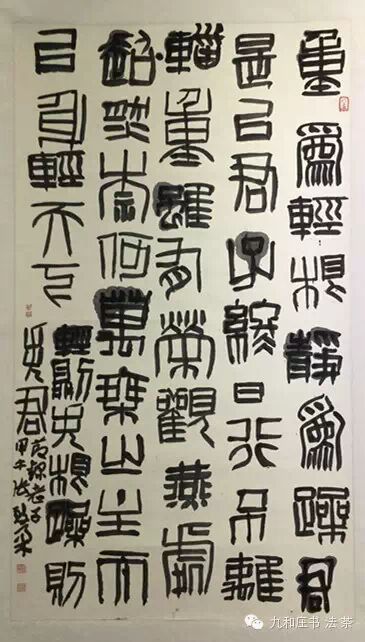 重爲輕根靜爲躁君
是以君子終日行不離
輜重雖有榮觀燕處
超然奈何萬乘之主而
以身輕天下
輕則失根躁則
失君
老子
甲午
九和庄书 法 茶